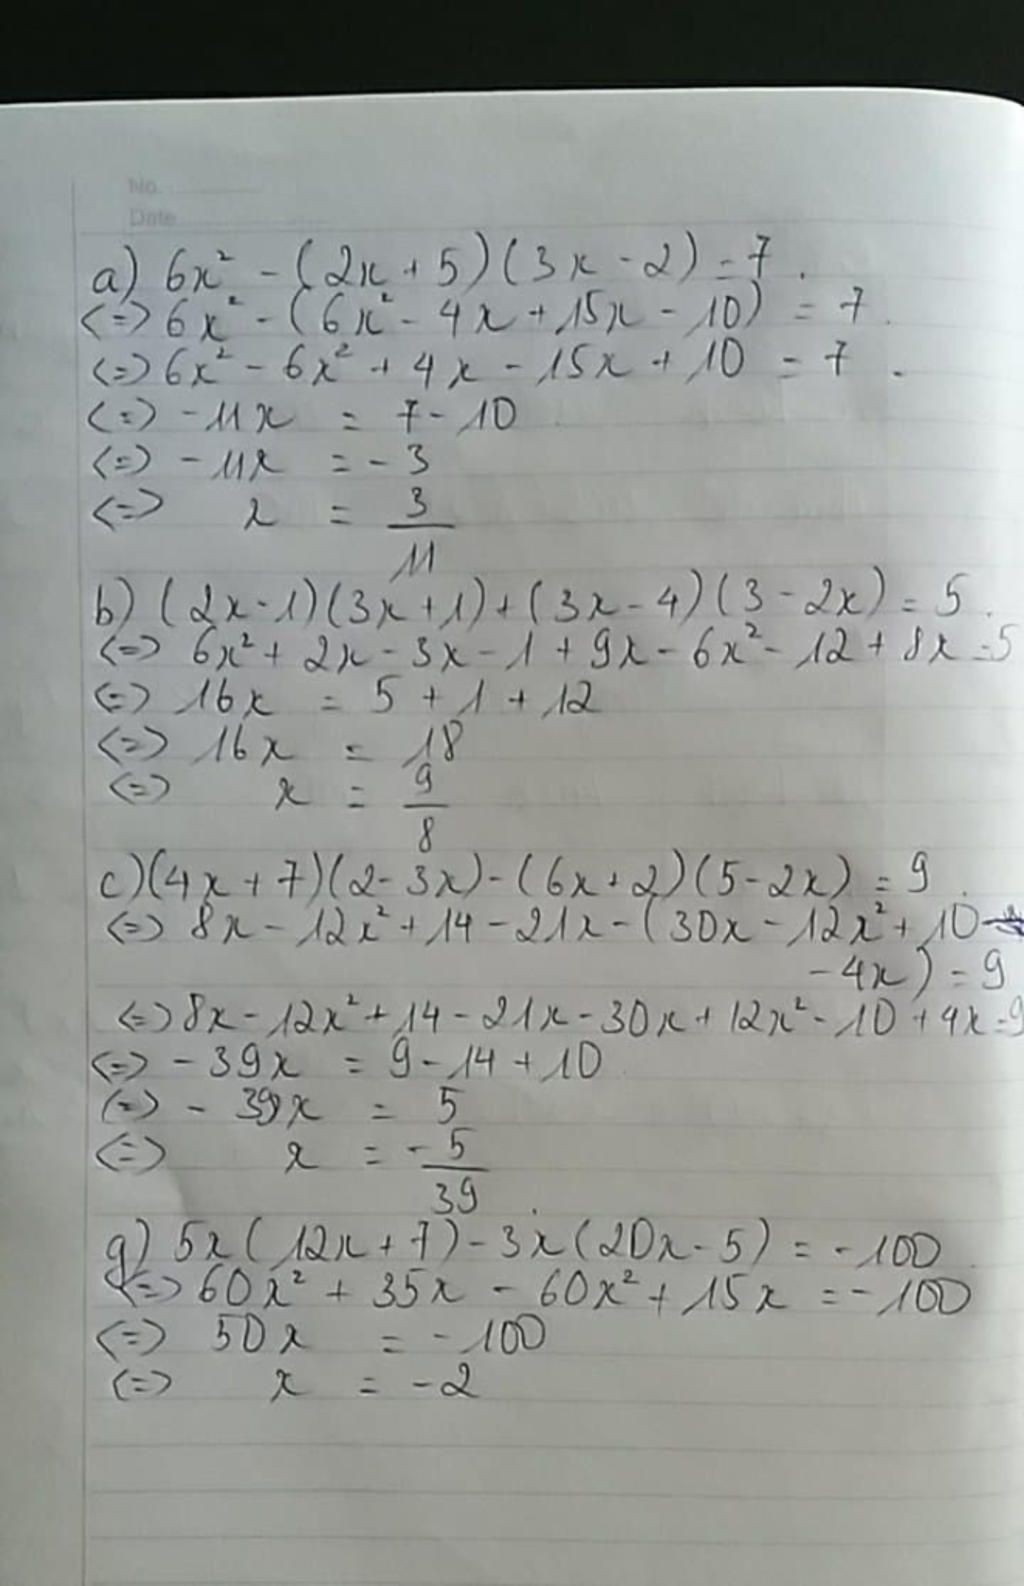 No.
Date
a) 6x² - (2x + 5)(3x - 2) = 7.
<=> 6x² - (6x² - 4x + 15x - 10) = 7.
<=> 6x² - 6x² + 4x - 15x + 10 = 7.
<=> -11x = 7 - 10
<=> -11x = -3
<=> x = 3/11
b) (2x - 1)(3x + 1) + (3x - 4)(3 - 2x) = 5.
<=> 6x² + 2x - 3x - 1 + 9x - 6x² - 12 + 8x = 5
<=> 16x = 5 + 1 + 12
<=> 16x = 18
<=> x = 9/8
c) (4x + 7)(2 - 3x) - (6x + 2)(5 - 2x) = 9.
<=> 8x - 12x² + 14 - 21x - (30x - 12x² + 10
- 4x) = 9
<=> 8x - 12x² + 14 - 21x - 30x + 12x² - 10 + 4x = 9
<=> -39x = 9 - 14 + 10
<=> -39x = 5
<=> x = -5/39.
g) 5x(12x + 7) - 3x(20x - 5) = -100
<=> 60x² + 35x - 60x² + 15x = -100
<=> 50x = -100
<=> x = -2